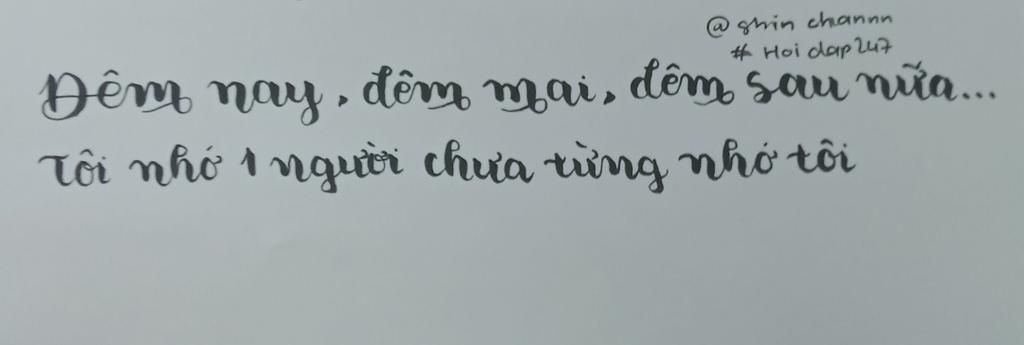 @ shin channn
# Hoi dap 247
Đêm nay, đêm mai, đêm sau nữa...
Tôi nhớ 1 người chưa từng nhớ tôi